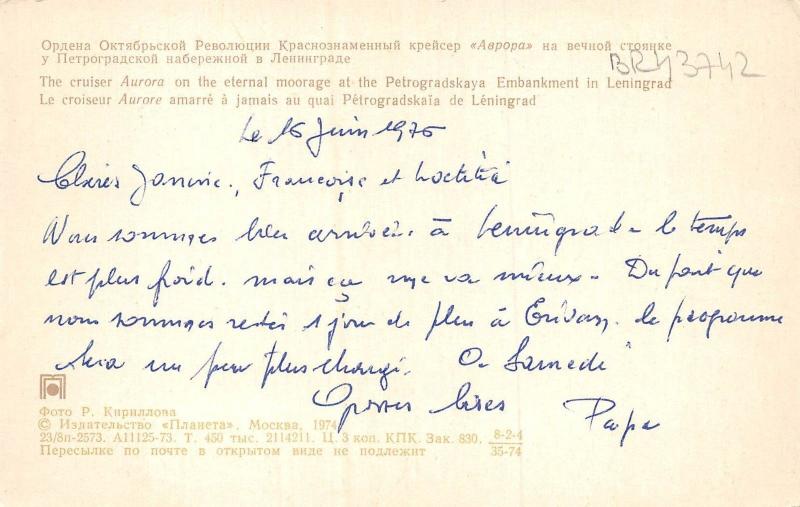 Ордена Октябрьской Революции Краснознаменный крейсер «Аврора» на вечной стоянке
у Петроградской набережной в Ленинграде
BR43742
The cruiser Aurora on the eternal moorage at the Petrogradskaya Embankment in Leningrad
Le croiseur Aurore amarré à jamais au quai Pétrogradskaïa de Léningrad
Le 16 Juin 1976
Chères Janine, Françoise et Laetitia
Nous sommes bien arrivés à Leningrad le temps
est plus froid. mais ça me va mieux. Du fait que
nous sommes restés 1 jour de plus à Erivan, le programme
sera un peu plus changé. A Samedi
Grosses bises
Papa
Фото Р. Кириллова
© Издательство «Планета». Москва, 1974
23/8п-2573. А11125-73. Т. 450 тыс. 2114211. Ц. 3 коп. КПК. Зак. 830. 8-2-4
35-74
Пересылке по почте в открытом виде не подлежит